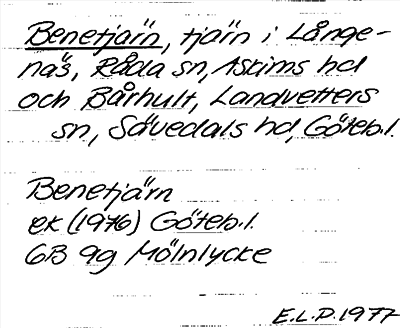 Benetjärn, tjärn i Långe-
näs, Råda sn, Askims hd
och Bårhult, Landvetters
sn, Sävedals hd, Göteb.l.
Benetjärn
ek (1976) Göteb.l.
6B 9g Mölnlycke
E.L.P. 1977